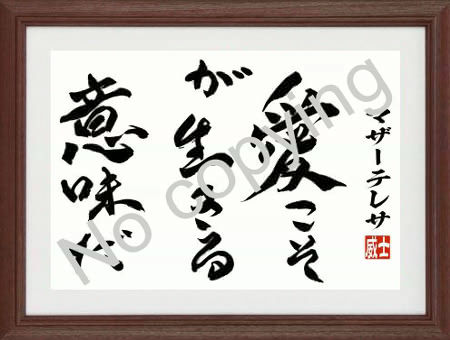 マザーテレサ
威士
愛こそ
が生きる
意味だ
No copying